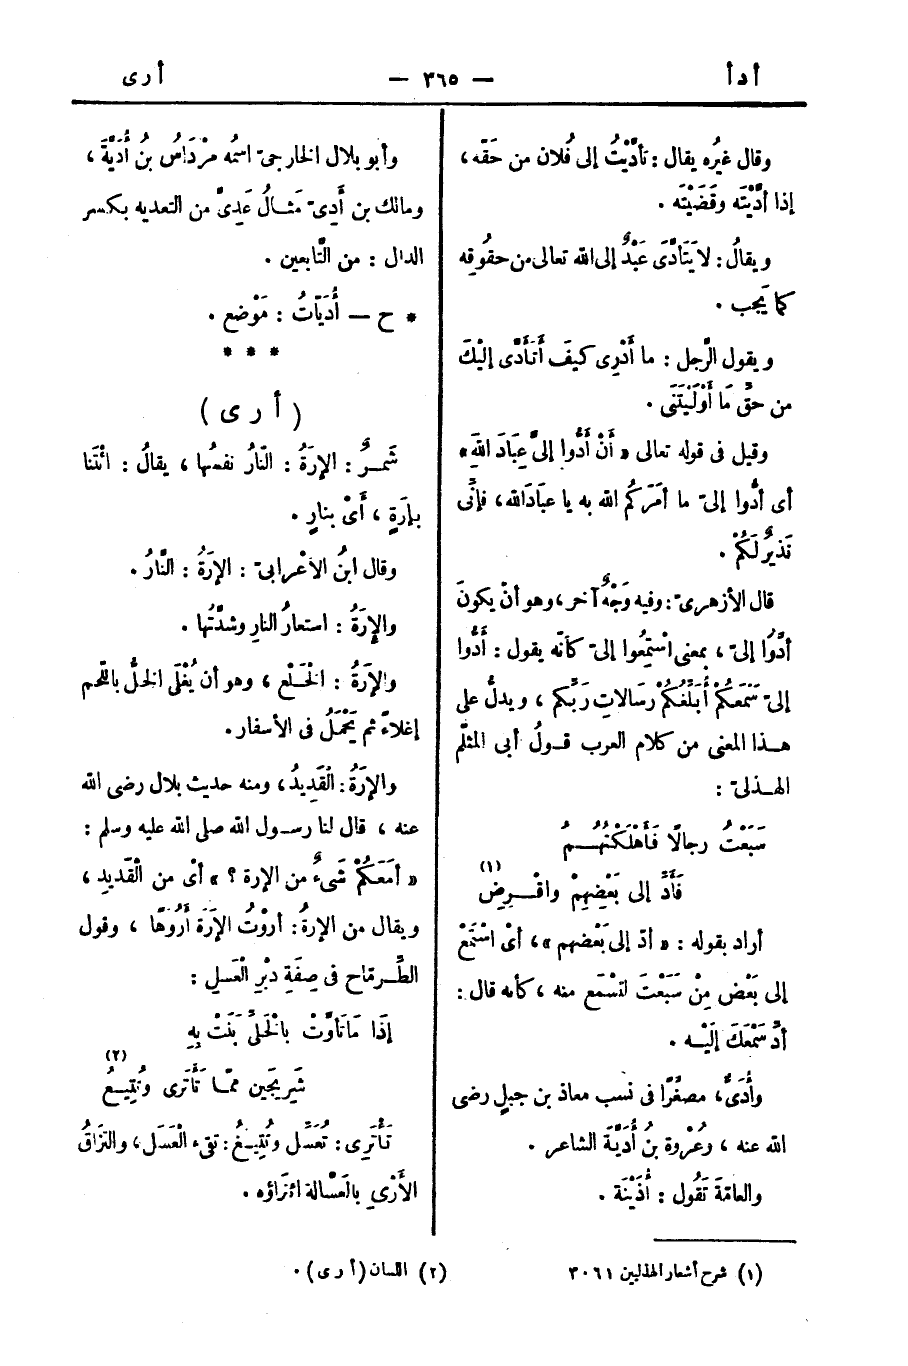 أدأ
— ٣٦٥ —
أرى
وقال غيرُه يقال : تأدَّيْتُ إلى فُلان من حَقّه ،
إذا أدَّيْتَه وقَضَيْتَه .
ويقالُ : لا يَتَأَدَّى عَبْدٌ إلى الله تعالى من حقُوقِه
كما يَجب .
ويقول الرَّجل : ما أَدْرِى كيفَ أَتَأَدَّى إليْكَ
من حقِّ مَا أَوْلَيْتَنى .
وقيل فى قوله تعالى « أَنْ أَدُّوا إلىَّ عِبَادَ اللهِ »
أى أدُّوا إلىّ ما أمَرَكُم الله به يا عبادَ الله ، فإنِّى
نَذِيرٌ لَكُمْ .
قال الأزهرىّ : وفيه وَجْهٌ آخر ، وهو أنْ يكونَ
أدُّوا إلىّ ، بمعنى اسْتَمِعُوا إلىّ كأنّه يقول : أَدُّوا
إلىّ سَمَعكُمْ أُبَلِّغْكُمْ رسَالاتِ رَبِّكم ، ويدلُّ على
هذا المعنى من كلام العرب قولُ أبى المثلّم
الهذلىّ :
سَبَعْتُ رجالًا فَأَهْلَكْتُهُم
فَأَدِّ إلى بَعْضِهِمْ واقْرِضِ (١)
أراد بقوله : « أدّ إلى بَعْضهم » ، أىْ اسْتَمعْ
إلى بَعْض مِنْ سَبَعْتَ لتَسْمَع منه ، كأنه قال :
أدِّ سَمْعَكَ إلَيْه .
وأُدَىٌّ ، مصغّرًا فى نسب معاذ بن جبل رضى
الله عنه ، وعُرْوة بنُ أُدَيَّةَ الشاعر .
والعامّة تَقُول : أُذَيْنَة .
وأبو بلال الخارجىّ اسمُه مرْدَاسُ بنُ أُدَيَّةَ ،
ومالك بن أَدِىّ مَثالُ عَدِىّ من التعديه بكسر
الدال : من التَّابعين .
* ح — أُدَيّاتُ : مَوْضع .
* * *
( أرى )
شَمِرٌ : الإرَةُ : النّارُ نفسُها ، يقالُ : ائْتنَا
بإرَةٍ ، أَىْ بنارٍ .
وقال ابنُ الأعْرابىّ : الإرَةُ : النَّارُ .
والإرَةُ : استعارُ النارِ وشدَّتُها .
والإرَةُ : الخَلْع ، وهو أن يُغْلَى الخلُّ باللّحم
إغلاءً ثم يُحْمَلُ فى الأسفار .
والإرَةُ : الْقَدِيدُ ، ومنه حديث بلال رضى الله
عنه ، قال لنا رسول الله صلى الله عليه وسلم :
« أمَعَكُمْ شَىءٌ من الإرة ؟ » أىْ من الْقَديد ،
ويقال من الإرةُ : أروْتُ الإرَة أروُهَا ، وقول
الطِّرمّاح فى صِفَةِ دبْرِ الْعَسلِ :
إذَا مَا تَأوَّتْ بالْخَلىِّ بَنَتْ بِهِ
شَرِيجَين ممّا تَأْتَرى وتُتِيعُ (٢)
تَأْتَرِى : تُعَسِّل وتُتِيعُ : تقىء الْعَسَل ، والتزاقُ
الأَرْىِ بالعَسَّالة ائتراؤه .
(١) شرح أشعار الهذليين ٣٠٦١
(٢) اللسان (أرى) .